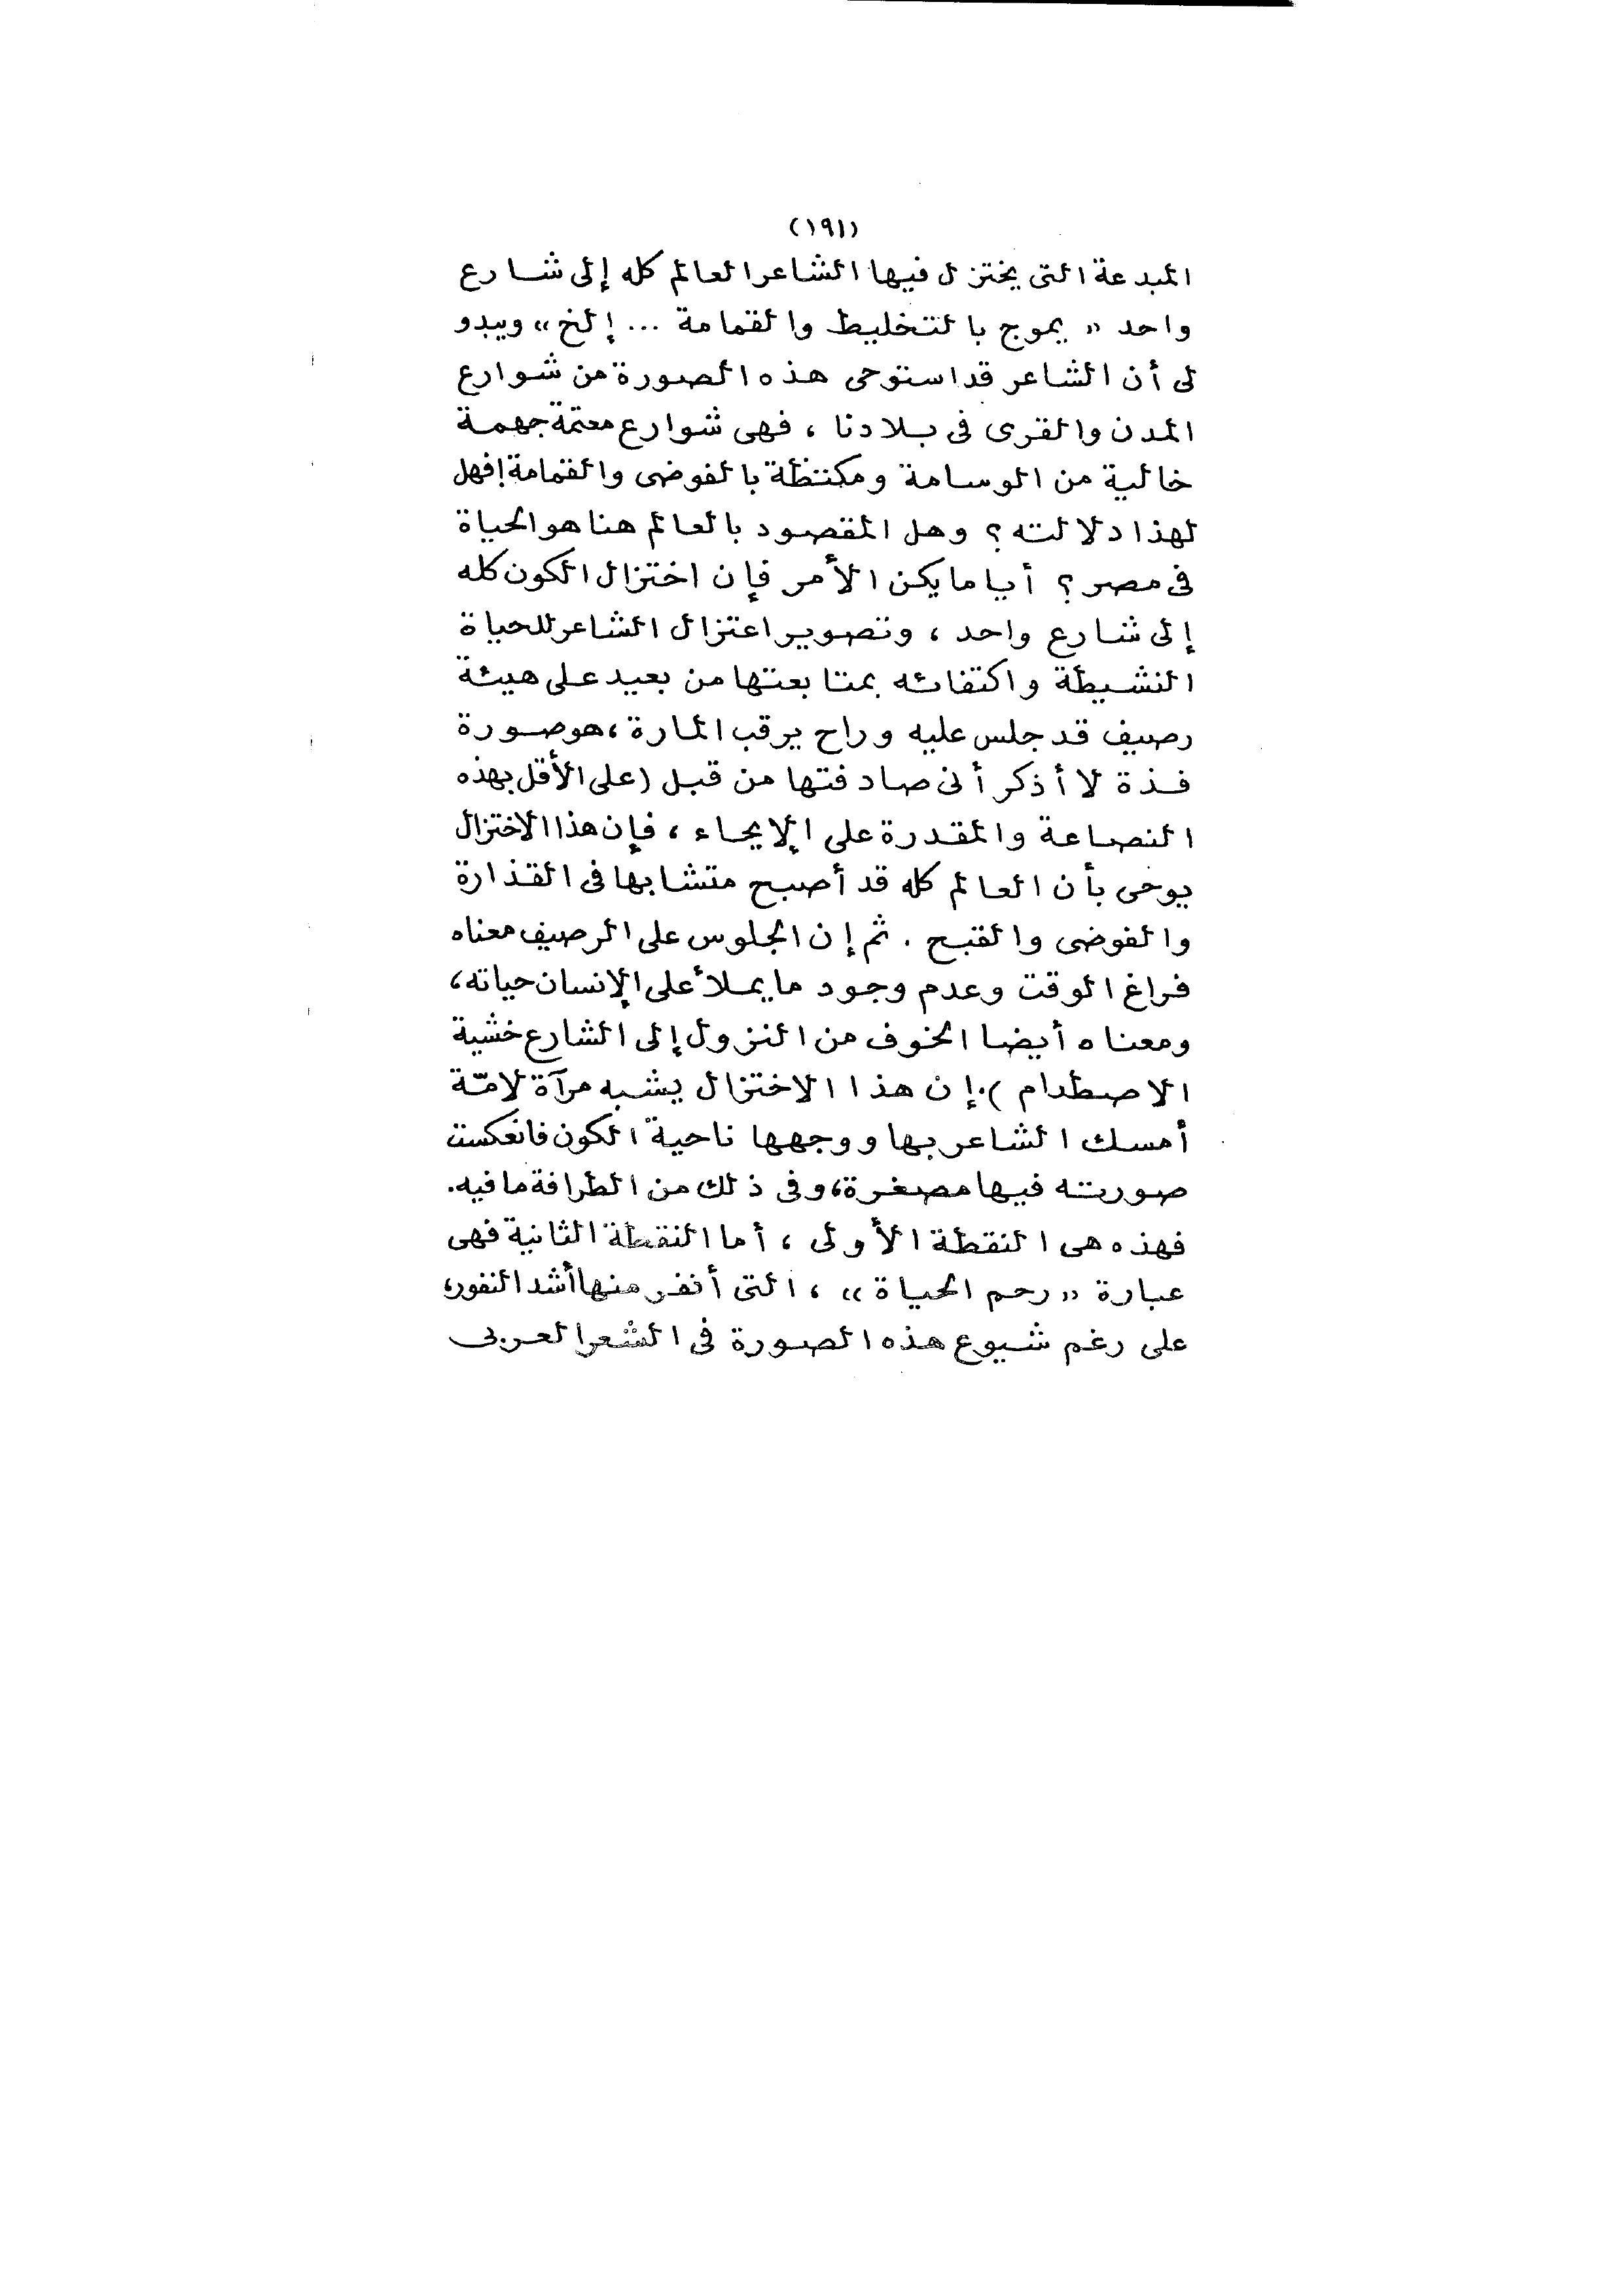 (١٩١)
المبدعة التى يختزل فيها الشاعر العالم كله إلى شارع
واحد « يموج بالتخليط والقمامة ... إلخ » ويبدو
لى أن الشاعر قد استوحى هذه الصورة من شوارع
المدن والقرى فى بلادنا ، فهى شوارع معتمة جهمة
خالية من الوسامة ومكتظة بالفوضى والقمامة ! فهل
لهذا دلالته ؟ وهل المقصود بالعالم هنا هو الحياة
فى مصر ؟ أيا ما يكن الأمر فإن اختزال الكون كله
إلى شارع واحد ، وتصوير اعتزال الشاعر للحياة
النشيطة واكتفائه بمتابعتها من بعيد على هيئة
رصيف قد جلس عليه وراح يرقب المارة ، هو صورة
فذة لا أذكر أنى صادفتها من قبل ( على الأقل بهذه
النصاعة والمقدرة على الإيحاء ، فإن هذا الاختزال
يوحى بأن العالم كله قد أصبح متشابها فى القذارة
والفوضى والقبح . ثم إن الجلوس على الرصيف معناه
فراغ الوقت وعدم وجود ما يملأ على الإنسان حياته ،
ومعناه أيضا الخوف من النزول إلى الشارع خشية
الاصطدام ) . إن هذا الاختزال يشبه مرآة لامّة
أمسك الشاعر بها ووجهها ناحية الكون فانعكست
صورته فيها مصغرة ، وفى ذلك من الطرافة ما فيه .
فهذه هى النقطة الأولى ، أما النقطة الثانية فهى
عبارة « رحم الحياة » ، التى أنفر منها أشد النفور ،
على رغم شيوع هذه الصورة فى الشعر العربى